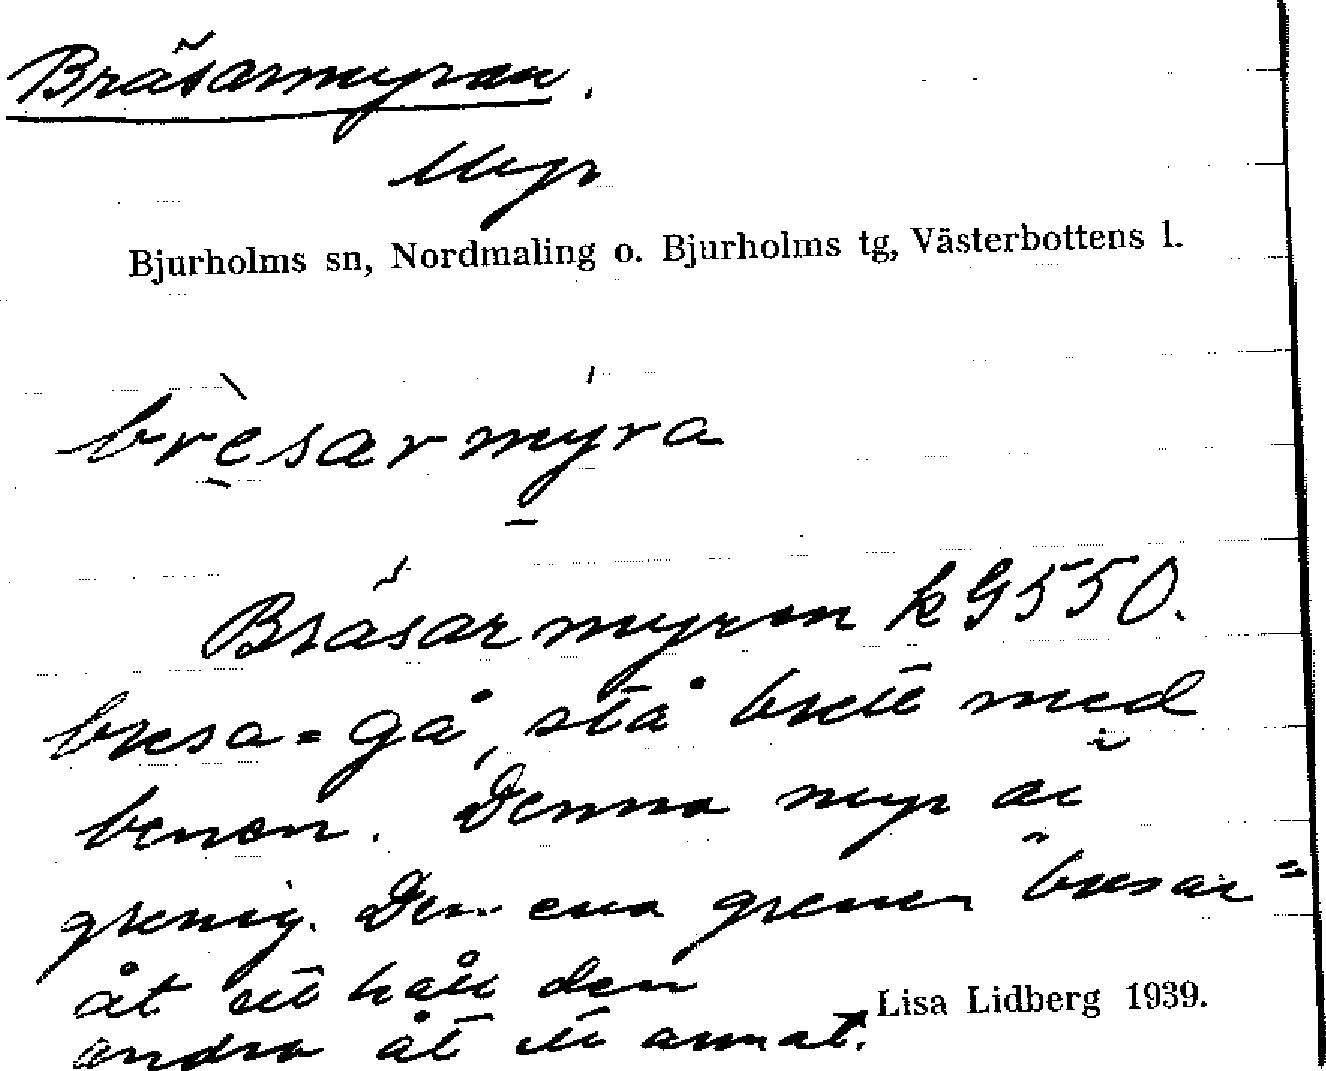 Bräsarmyran.
Myr
Bjurholms sn, Nordmaling o. Bjurholms tg, Västerbottens l.
bresarmyra
Bräsarmyran k G 550.
bresa = gå, stå brett med
benen. Denna myr är
grenig. Den ena grenen "bresar"
åt ett håll den
andra åt ett annat.
Lisa Lidberg 1939.